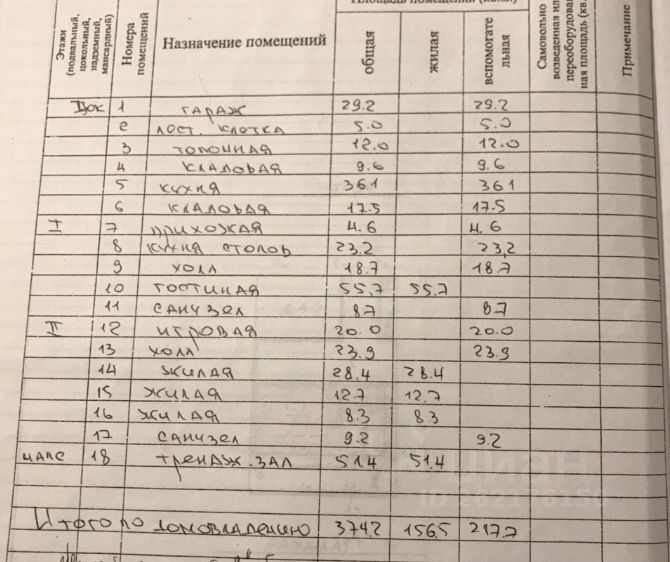 Площадь помещений (кв.м.)
Этажи (подвальный, цокольный, надземный, мансардный) Номера помещений Назначение помещений общая жилая вспомогательная Самовольно возведенная или переоборудованная площадь (кв. Примечание
Цок 1 гараж 29.2 29.2
2 лест. клетка 5.0 5.0
3 топочная 12.0 12.0
4 кладовая 9.6 9.6
5 кухня 36.1 36.1
6 кладовая 17.5 17.5
I 7 прихожая 4.6 4.6
8 кухня столов 23.2 23,2
9 холл 18.7 18.7
10 гостиная 55,7 55.7
11 санузел 8.7 8.7
II 12 игровая 20.0 20.0
13 холл 23.9 23.9
14 жилая 28.4 28.4
15 жилая 12.7 12.7
16 жилая 8.3 8.3
17 санузел 9.2 9.2
манс 18 тренаж. зал 51.4 51.4
Итого по домовладению 374.2 156.5 217.7